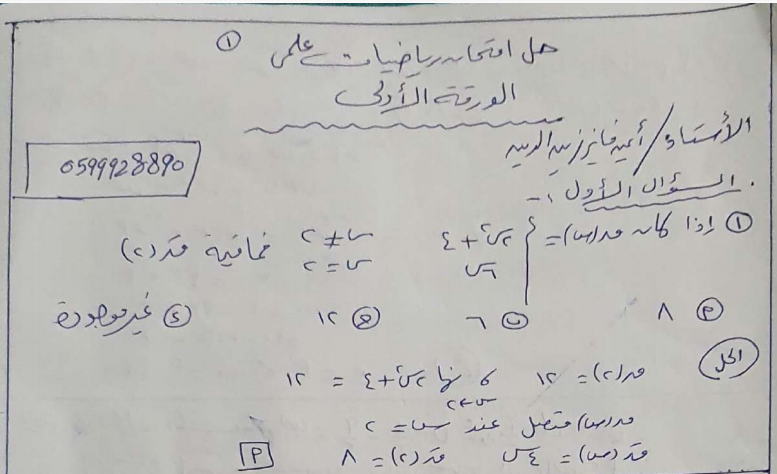 حل امتحان رياضيات علمي ①
الورقة الأولى
الأستاذ / أيمن فايز زين الدين
0599928890
السؤال الأول :-
① إذا كان ق(س) = { ٢س٢ + ٤ س ≠ ٢
٦س س = ٢ فما قيمة قَ(٢)
Ⓟ ٨ ⓑ ٦ ⓙ ١٢ ⓓ غير موجودة
الحل
ق(٢) = ١٢ نها ٢س٢ + ٤ = ١٢
س←٢
ق(س) متصل عند س = ٢
قَ(س) = ٤س قَ(٢) = ٨ P